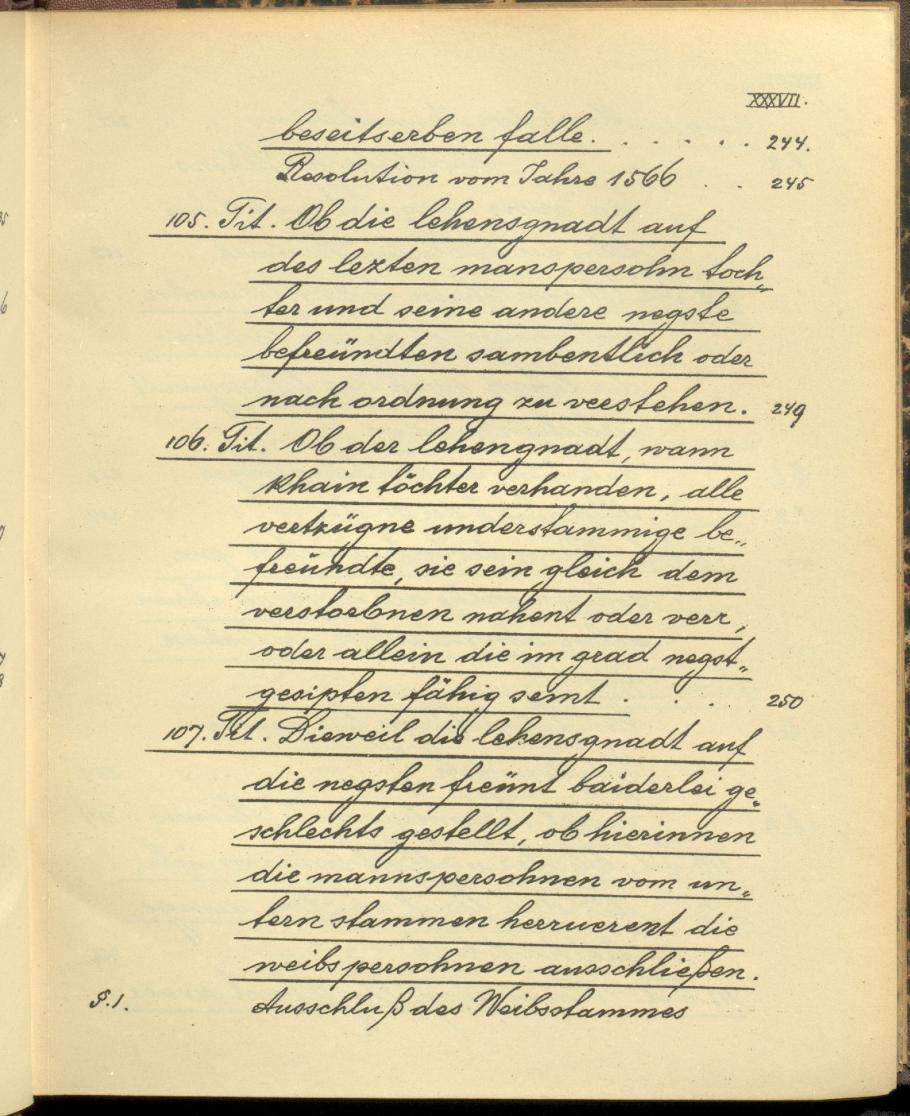 XXXVII.
beseitserben falle. . . . . . 244.
Resolution vom Jahre 1566 . . 245
105. Tit. Ob die lehensgnadt auf
des lezten manspersohn toch„
ter und seine andere negste
befreündten sambentlich oder
nach ordnung zu veestehen. 249
106. Tit. Ob der lehengnadt, wann
khain töchter verhanden, alle
vertzügne understammige be„
freündte, sie sein gleich dem
verstoebnen nahent oder verr,
oder allein die im grad negst„
gesipten fähig semt . . . . 250
107. Tit. Dieweil die lehensgnadt auf
die negsten freünt baiderlei ge„
schlechts gestellt, ob hierinnen
die mannspersohnen vom un„
tern stammen herruerent die
weibspersohnen ausschließen.
§.1. Ausschluß des Weibsstammes